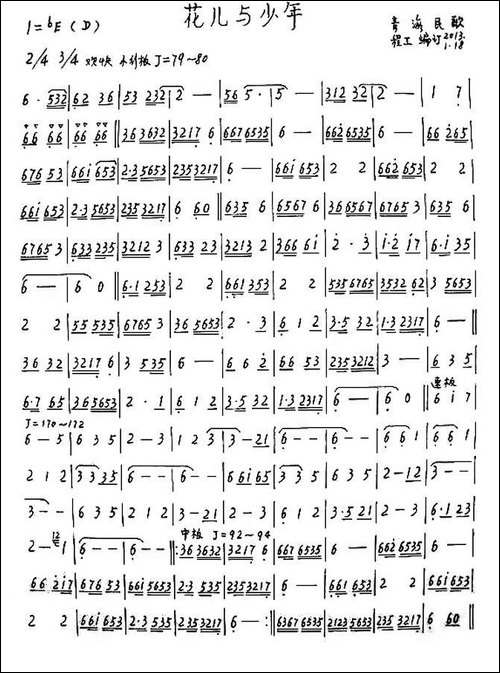 花儿与少年
1=♭E（D） 青海民歌
2/4 3/4 欢快 小行板 ♩=79~80 程工 编订 2013.1.18
6· 532 | 62 36 | 53 232 | 2 — | 56 5· | 5 — | 312 32 | 2 — | 1 7 |
66 66 | 66 66 ‖ 36 3632 | 3217 6 | 667 6535 | 6 — | 662 6535 | 6 — | 66 265 |
676 53 | 661 653 | 2·3 5653 | 235 3217 | 6 — | 661 653 | 2 2 | 662 653 | 2 2 |
661 653 | 2·3 5653 | 235 3217 | 6 60 ‖ 635 6 | 6567 6 | 36 6567 | 6765 3 | 635 6 |
6765 3 | 633 235 | 3212 3 | 633 23 | 3213 2 | 366 61 | 2 · 3 | 1·2 17 | 6·1 35 |
6 — | 6 0 ‖ 6·1 253 | 2 2 | 661 353 | 2 2 | 535 6765 | 3532 62 | 3 5653 |
2 2 | 55 535 | 6765 3 | 36 5653 | 2 · 3 | 6 1 2 | 3·5 32 | 1·3 2317 | 6 — ‖
36 32 | 3217 6 | 3 535 | 6 — | 6 6 2 | 66 535 | 235 3212 | 3 — | 6 3 5 |
6·7 65 | 365653 | 2 · 1 | 6 1 2 | 3·5 32 | 1·3 2317 | 6 — | 6 0 ‖ 速板 6 1 7 |
♩=170~172
6 — 5 | 6 3 5 | 2 — 3 | 1 2 3 | 3 — 21 | 6 — — | 6 — — | 6 6 1 | 6 6 1 |
2 1 2 | 3 3 5 | 6 — — | 6 — — | 66 1 65 | 3 3 5 | 6 3 5 | 2 — 12 | 3 — — |
3 — — | 6 3 5 | 2 1 2 | 3 — 21 | 2 — 3 | 6 1 2 | 3·5 21 | 2 — 3 | 6·1 23 |
中板 ♩=92~94
2 — 1 | 6 — — | 6 — — ‖: 36 3632 | 3217 6 | 667 6535 | 6 — | 662 6535 | 6 — |
66 217 | 676 53 | 661 5653 | 2·3 535 | 235 3217 | 6 — | 661 653 | 2 2 | 661 653 |
2 2 | 661 653 | 2·3 535 | 235 3217 | 6 — :‖ 6367 6535 | 2123 5653 | 235 3217 | 6 60 ‖